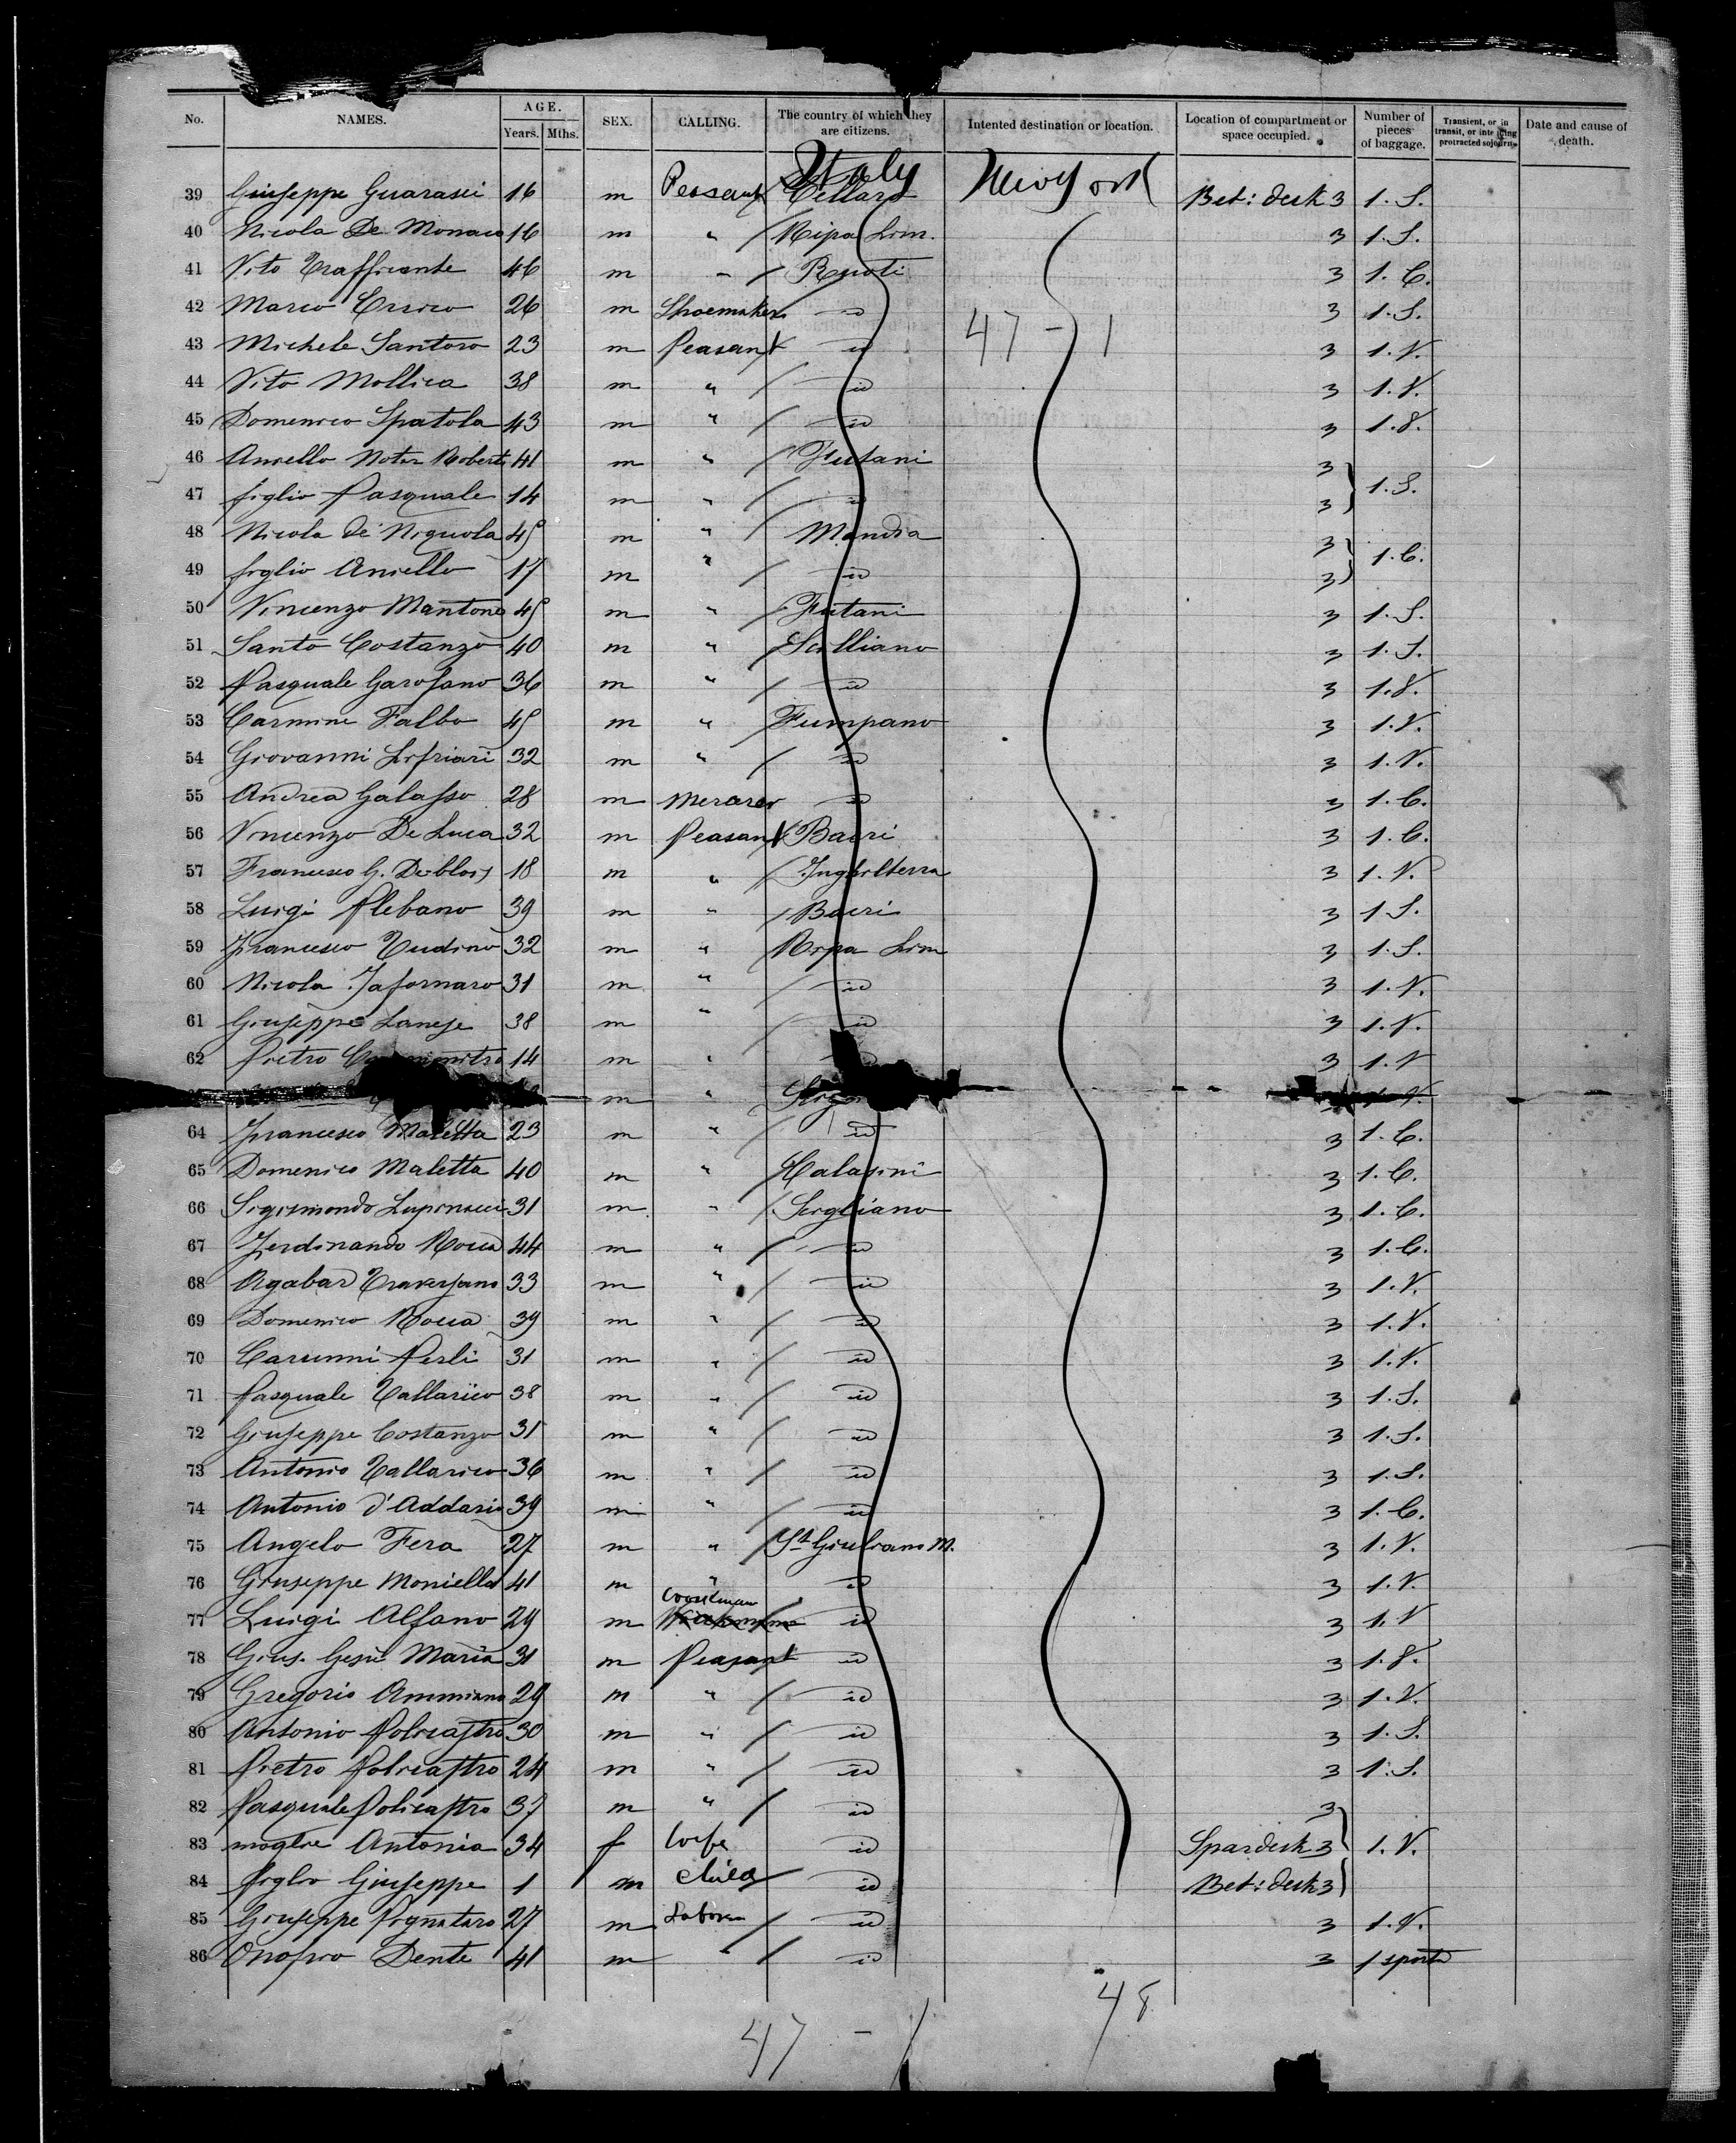 No. NAMES. AGE. Years. Mths. SEX. CALLING. The country of which they are citizens. Intented destination or location. Location of compartment or space occupied. Number of pieces of baggage. Transient, or in transit, or intending protracted sojourn. Date and cause of death.
Italy New York
39 Giuseppe Guarasci 16 m Peasant Cellara Bet: deck 3 1. S.
40 Nicola De Monaco 16 m " Ripa Lim. 3 1. S.
41 Vito Trafficante 46 m " Ruoti 3 1. C.
42 Marco Errico 26 m Shoemaker id 3 1. S.
43 Michele Santoro 23 m Peasant id 3 1. V.
47 - 1
44 Vito Mollica 38 m " id 3 1. V.
45 Domenico Spatola 43 m " id 3 1. 8.
46 Aniello Roberti 41 m " Futani 3
47 figlio Pasquale 14 m " id 3 1. S.
48 Nicola de 45 m " Mandia 3
49 figlio Aniello 17 m " id 3 1. C.
50 Vincenzo Mantone 45 m " Futani 3 1. S.
51 Santo Costanzo 40 m " Scilliano 3 1. S.
52 Pasquale Garofano 36 m " id 3 1. 8.
53 Carmine Falbo 45 m " Fumpano 3 1. V.
54 Giovanni 32 m " id 3 1. V.
55 Andrea Galasso 28 m id 3 1. C.
56 Vincenzo De Luca 32 m Peasant Bacri 3 1. C.
57 Francesco G. 18 m " Inghilterra 3 1. V.
58 Luigi Plebano 39 m " Bacri 3 1 S.
59 Francesco Tudino 32 m " Ripa Lim 3 1. S.
60 Nicola Jafornaro 31 m " id 3 1. V.
61 Giuseppe Lanese 38 m " id 3 1. V.
62 Pietro 14 m " 3 1. V
m "
64 Francesco Maletta 23 m " id 3 1. C.
65 Domenico Maletta 40 m " Calasini 3 1. C.
66 Sigismondo Lupinacci 31 m " Scigliano 3 1. C.
67 Ferdinando Rocca 44 m " id 3 1. C.
68 Agabar 33 m " id 3 1. V.
69 Domenico Rocca 39 m " id 3 1. V.
70 Perli 31 m " id 3 1. V.
71 Pasquale Tallarico 38 m " id 3 1. S.
72 Giuseppe Costanzo 31 m " id 3 1. S.
73 Antonio Tallarico 36 m " id 3 1. S.
74 Antonio d'Addario 39 m " id 3 1. C.
75 Angelo Fera 27 m " St Giuliano M. 3 1. V.
76 Giuseppe Moniella 41 m " id 3 1. V.
77 Luigi Alfano 29 m id 3 1. V
78 Gius. Gesù Maria 31 m Peasant id 3 1. 8.
79 Gregorio Ammiano 29 m " id 3 1. V.
80 Antonio Policastro 30 m " id 3 1. S.
81 Pietro Policastro 24 m " id 3 1. S.
82 Pasquale Policastro 37 m " id 3
83 moglie Antonia 34 f wife id Spardeck 3 1. V.
84 figlio Giuseppe 1 m child id Bet: deck 3
85 Giuseppe Pignataro 27 m Labor id 3 1. V.
86 Onofrio Dente 41 m " id 3 1 sporta
48
47 - 1